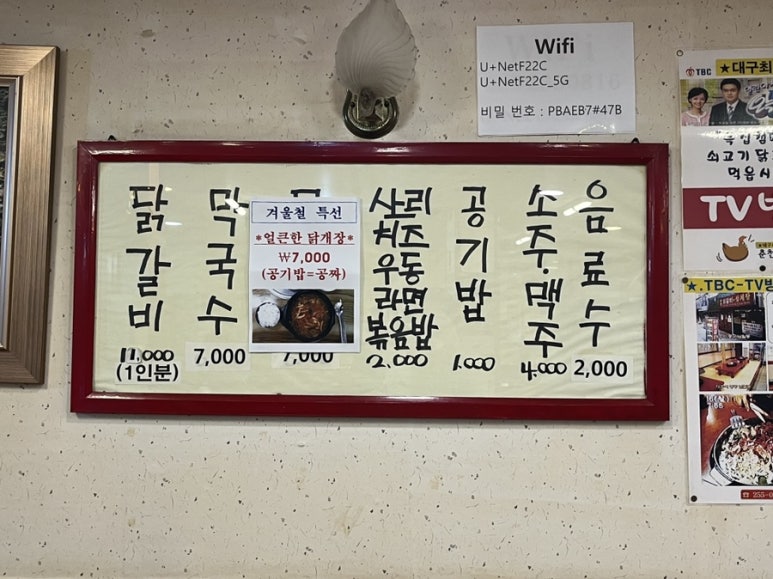 Wifi
U+NetF22C
U+NetF22C_5G
비밀 번호 : PBAEB7#47B
닭갈비
11,000
(1인분)
막국수
7,000
겨울철 특선
*얼큰한 닭개장*
₩7,000
(공기밥=공짜)
7,000
사리
치즈
우동
라면
볶음밥
2,000
공기밥
1,000
소주·맥주
4,000
음료수
2,000
TBC ★대구최
쇠고기 닭
먹읍시
TV
★.TBC-TV방